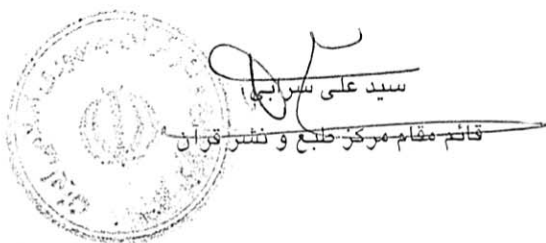 سید علی سرابی
قائم مقام مرکز طبع و نشر قرآن